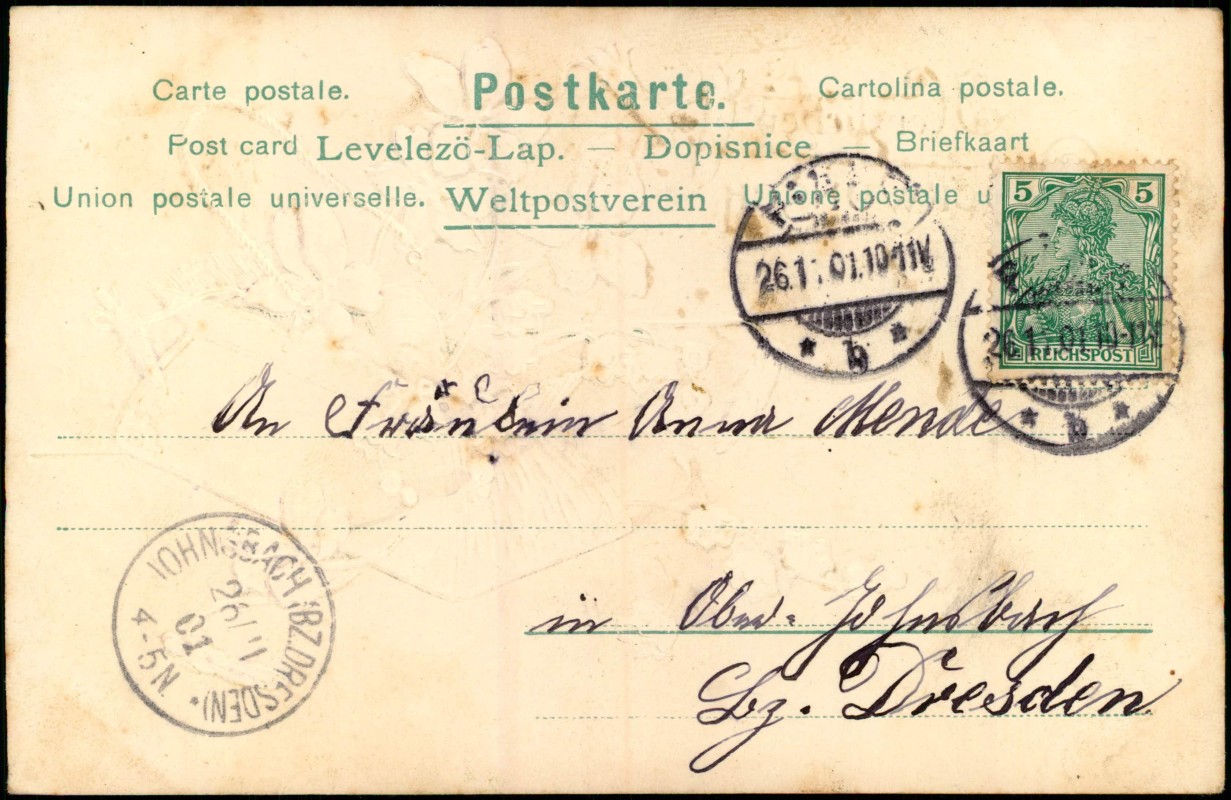 Carte postale. Postkarte. Cartolina postale.
Post card Levelezö-Lap. — Dopisnice — Briefkaart
Union postale universelle. Weltpostverein Unione postale u
5 5
REICHSPOST
26.11.01.10-11V.
* b *
26.1 01.10-11V.
* b *
An Fräulein Anna Mende
in Ober-Johnsbach
Bz. Dresden
JOHNSBACH (BZ.DRESDEN)
26/11
01
4-5N